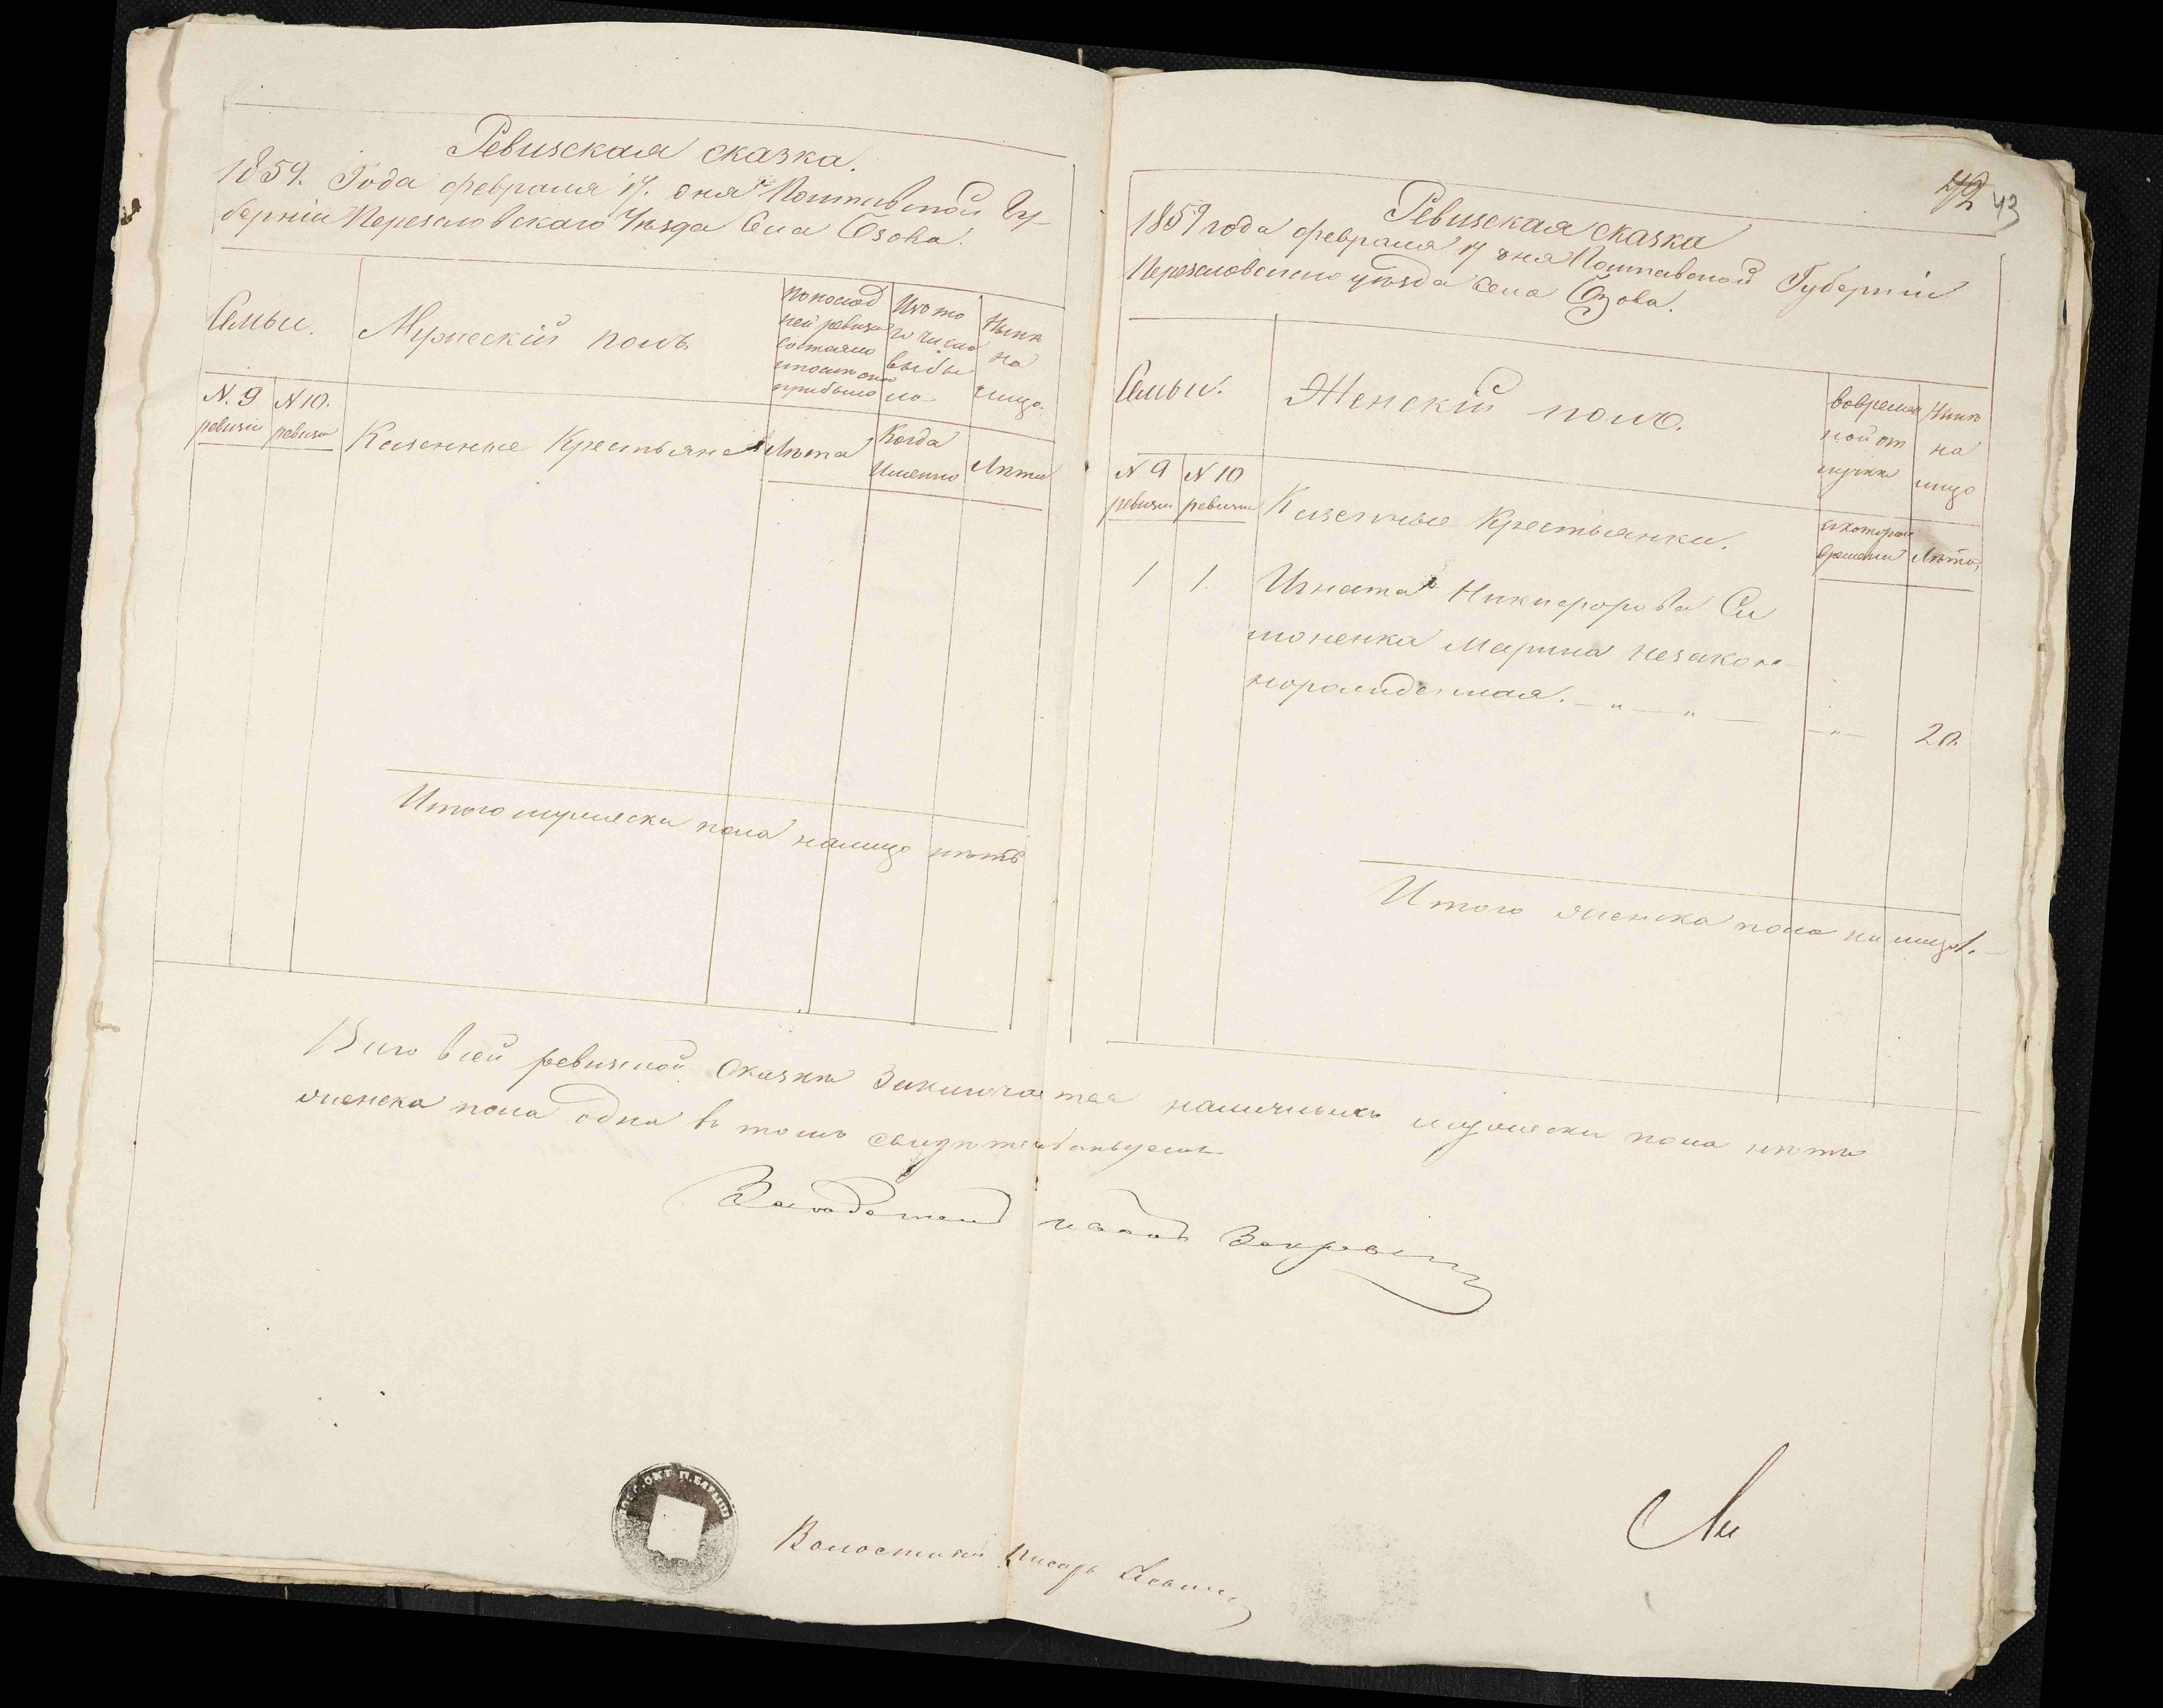 Ревизская сказка.
1859. Года февраля 17. дня Полтавской Гу-
берніи Переяловскаго Уѣзда Села Озова.
Семьи.
Мужескій полъ
По послѣд
ней ревизіи
состояло
и после оной
прибыло
Изъ то
го числа
выбы
ло
Нынѣ
на
лицо.
N. 9
ревизіи
N 10.
ревизіи
Казенные Крестьяне
Лѣта
Когда
именно
Лѣта
Итого мужеска пола налицо нѣтъ
42 43
Ревизская сказка
1859 года февраля 17 дня Полтавской Губерніи
Переяловскаго уѣзда села Озова.
Семьи.
Женскій полъ.
Во времен
ной от
лучкѣ
Нынѣ
на
лицо
N 9
ревизіи
N 10
ревизіи
Казенные Крестьянки.
Съ котораго
времени
Лѣта
1 1. Игната Никифорова Си
моненка Марина незакон-
норожденная. — „ — „ — — „ — 20.
Итого женска пола на лицо 1.
Всего в сей ревизской сказкѣ заключается наличныхъ мужеска пола нѣтъ
женска пола одна въ томъ свидѣтельствуемъ
Волостной Писарь